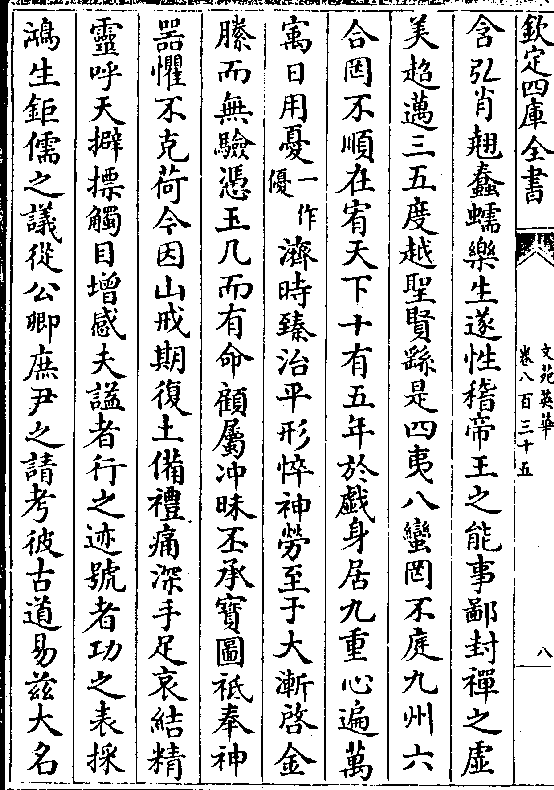 欽定四庫全書
文苑英華
卷八百三十五
八
含弘肖翹蠢蠕樂生遂性稽帝王之能事鄙封禪之虛
美超邁三五度越聖賢繇是四夷八蠻罔不庭九州六
合罔不順在宥天下十有五年於戲身居九重心遍萬
㝢日用憂一作優濟時臻治平形悴神勞至于大漸啓金
縢而無驗憑玉几而有命顧屬冲昧丕承寶圖祗奉神
器懼不克荷今因山戒期復土備禮痛深手足哀結精
靈呼天擗摽觸目增感夫諡者行之迹號者功之表採
鴻生鉅儒之議從公卿庶尹之請考彼古道易茲大名